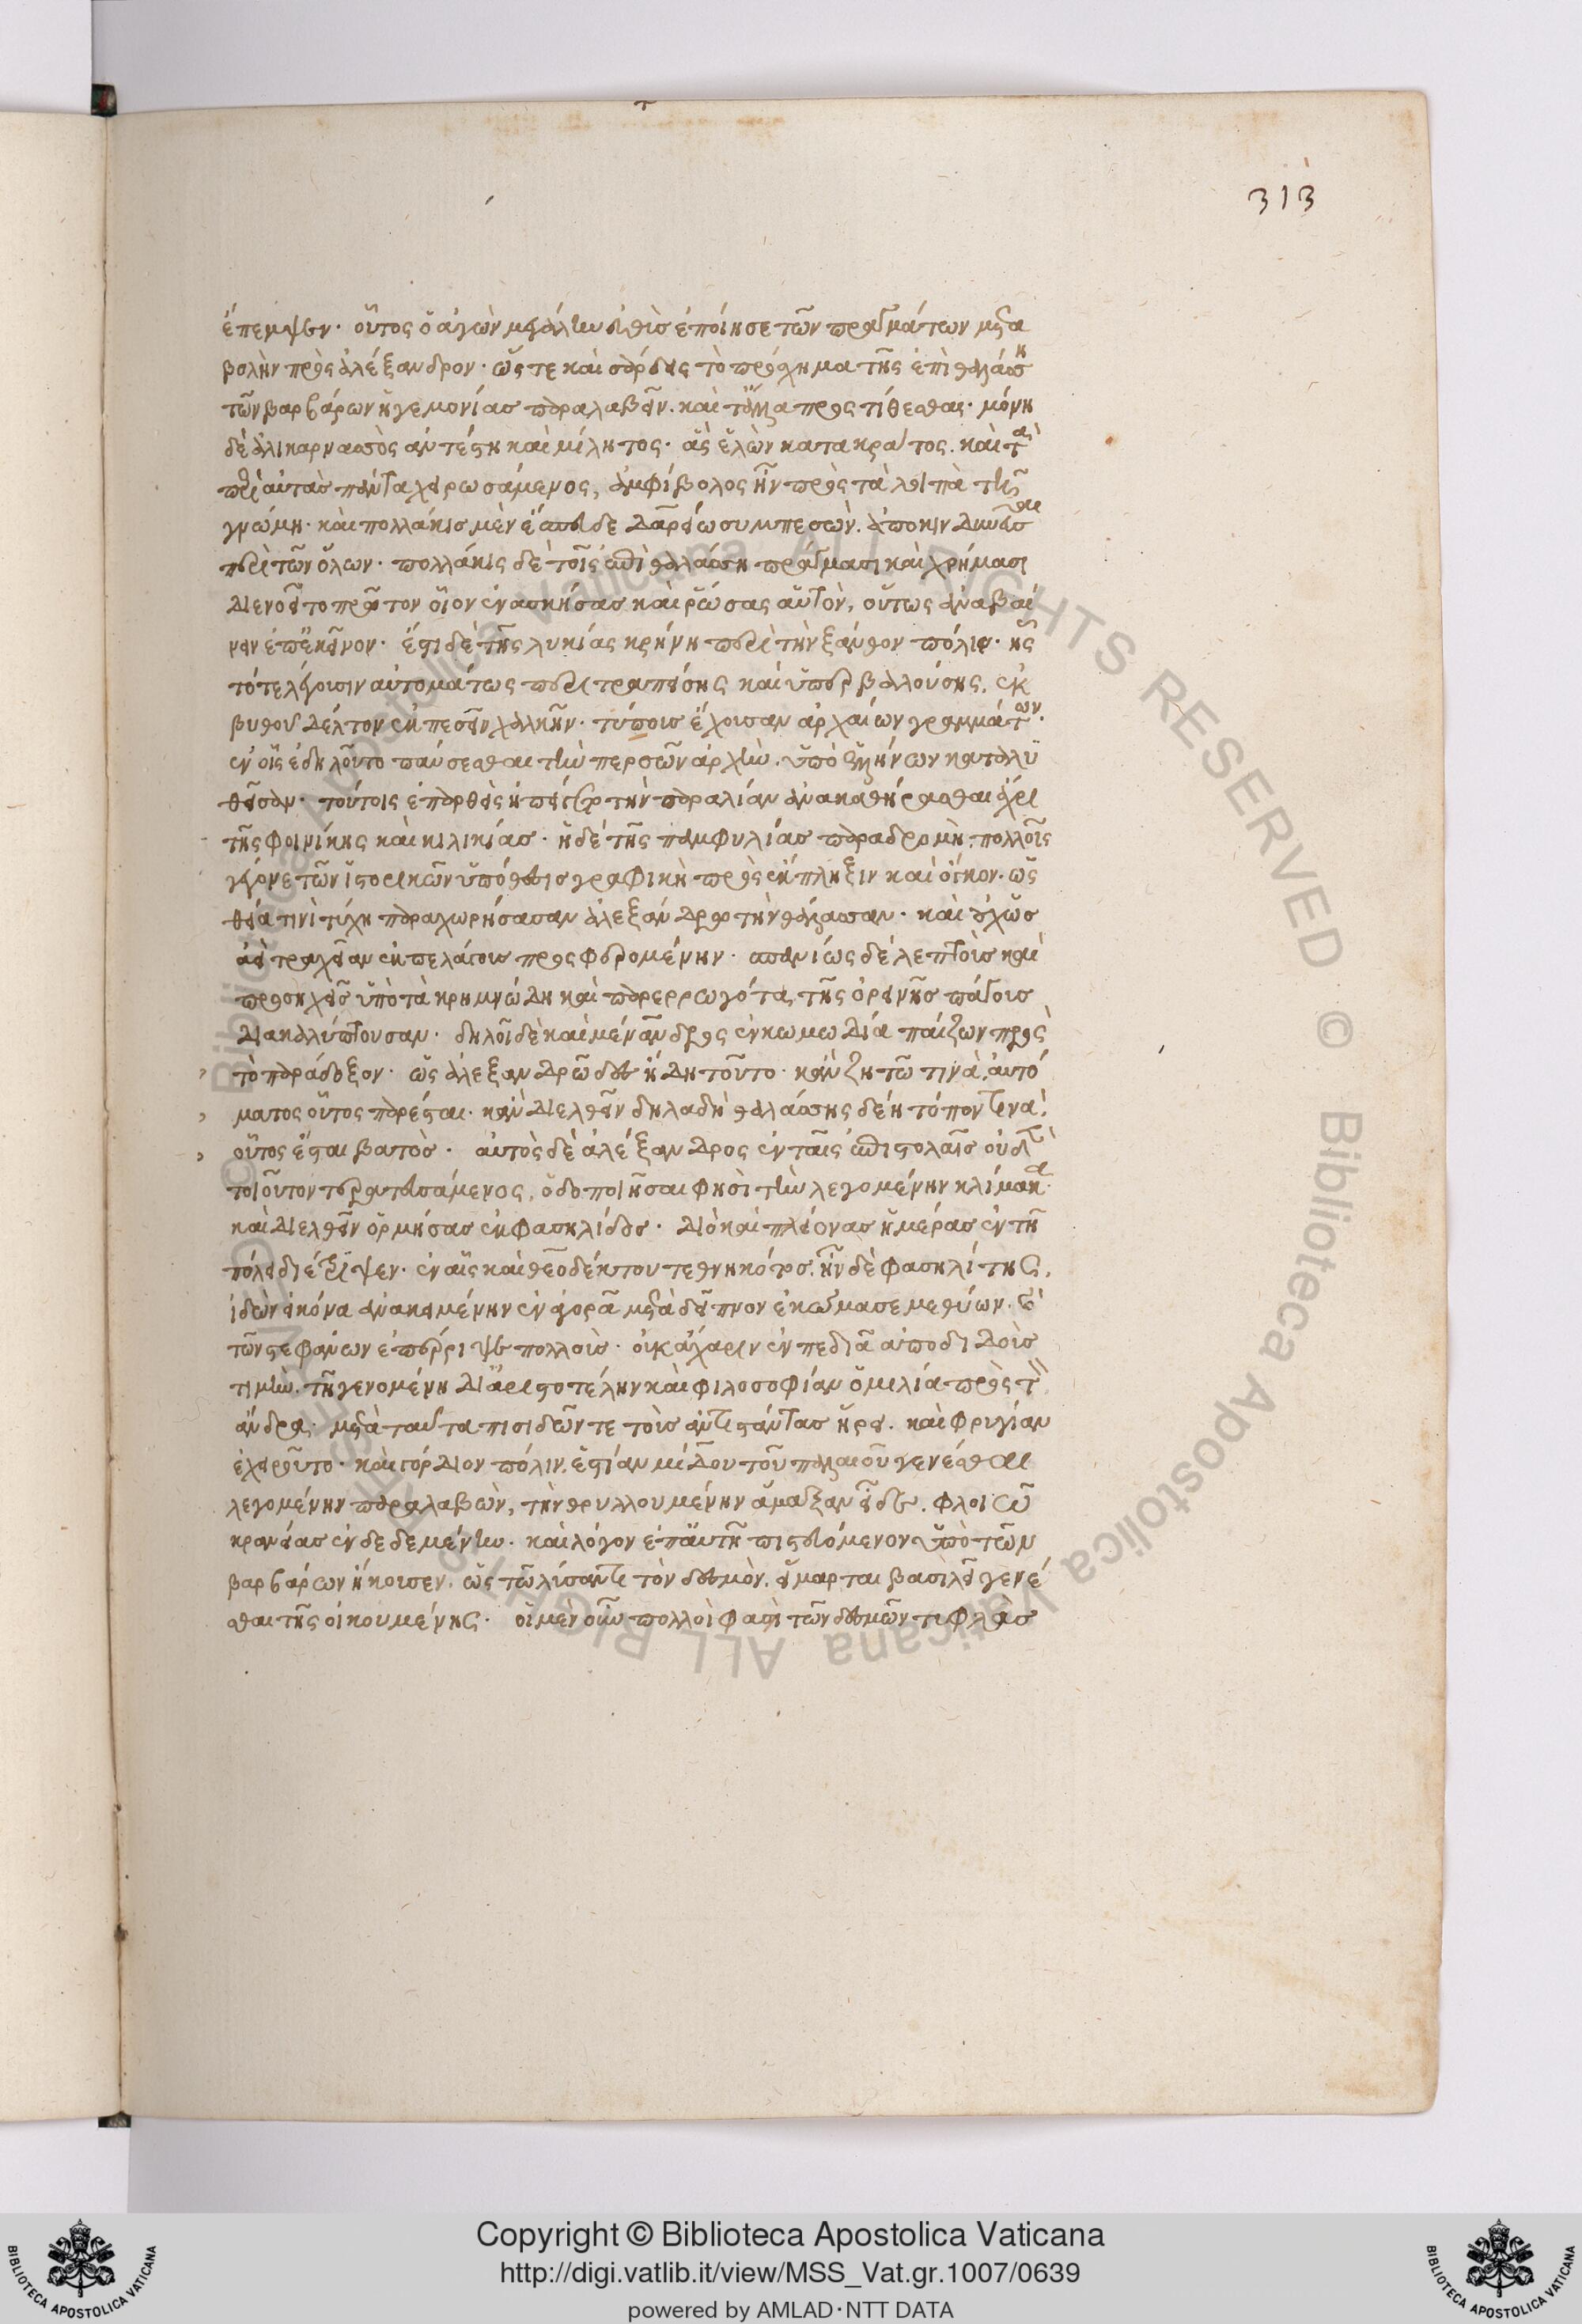 313
ἔπεμψεν. οὗτος ὁ ἀγὼν μεγάλην εὐθὺς ἐποίησε τῶν πραγμάτων μετα
βολὴν πρὸς ἀλέξανδρον. ὥστε καὶ σάρδεις τὸ πρόσχημα τῆς ἐπὶ θαλάσση
τῶν βαρβάρων ἡγεμονίας παραλαβεῖν. καὶ τἄλλα προστίθεσθαι. μόνη
δὲ ἁλικαρνασσὸς ἀντέστη καὶ μίλητος. ἃς ἑλὼν κατακράτος. καὶ τὰ
περὶ αὐτὰς πάντα χειρωσάμενος, ἀμφίβολος ἦν πρὸς τὰ λοιπὰ τῆ
γνώμη. καὶ πολλάκις μὲν ἔσπευδε δαρείω συμπεσὼν. ἀποκινδυνεῦσαι
περὶ τῶν ὅλων. πολλάκις δὲ τοῖς ἐπὶ θαλάσση πράγμασι καὶ χρήμασι
διενοεῖτο πρῶτον οἷον ἐνασκήσας καὶ ῥώσας αὑτὸν, οὕτως ἀναβαί
νειν ἐπ' ἐκεῖνον. ἔστι δὲ τῆς λυκίας κρήνη περὶ τὴν ξάνθον πόλιν. ἧς
τότε λέγουσιν αὐτομάτως περιτραπείσης καὶ ὑπερβαλούσης, ἐκ
βυθοῦ δέλτον ἐκπεσεῖν χαλκῆν. τύπους ἔχουσαν ἀρχαίων γραμμάτων.
ἐν οἷς ἐδηλοῦτο παύσεσθαι τὴν περσῶν ἀρχὴν. ὑπὸ ἑλλήνων καταλυ
θεῖσαν. τούτοις ἐπαρθεὶς ἠπείγετο τὴν παραλίαν ἀνακαθήρασθαι ἄχρι
τῆς φοινίκης καὶ κιλικίας. ἡ δὲ τῆς παμφυλίας παραδρομὴ. πολλοῖς
γέγονε τῶν ἱστορικῶν ὑπόθεσις γραφικὴ πρὸς ἔκπληξιν καὶ ὄγκον. ὡς
θεία τινὶ τύχη παραχωρήσασαν ἀλεξάνδρω τὴν θάλασσαν. καὶ ἄλλως
ἀεὶ τραχεῖαν ἐκ πελάγους προσφερομένην. σπανίως δὲ λεπτοὺς καὶ
προσηχεῖς ὑπὸ τὰ κρημνώδη καὶ παρερρωγότα, τῆς ὀρεινῆς πάγους
διακαλύπτουσαν. δηλοῖ δὲ καὶ μένανδρος ἐν κωμωδία παίζων πρὸς
τὸ παράδοξον. ὡς ἀλεξανδρῶδες ἤδη τοῦτο. κἂν ζητῶ τινὰ, αὐτό
ματος οὗτος παρέσται. κἂν διελθεῖν δηλαδὴ θαλάσσης δέη τόπον τινὰ,
οὗτος ἔσται βατὸς. αὐτὸς δὲ ἀλέξανδρος ἐν ταῖς ἐπιστολαῖς οὐδὲν
τοιοῦτον τερατευσάμενος, ὁδοποιῆσαι φησὶ τὴν λεγομένην κλίμακα.
καὶ διελθεῖν ὁρμήσας ἐκ φασηλίδος. διὸ καὶ πλείονας ἡμέρας ἐν τῆ
πόλει διέτριψεν. ἐν αἷς καὶ θεοδέκτου τεθνηκότος. ἦν δὲ φασηλίτης,
ἰδὼν εἰκόνα ἀνακειμένην ἐν ἀγορᾶ μετὰ δεῖπνον ἐκώμασε μεθύων. καὶ
τῶν στεφάνων ἐπέρριψε πολλοὺς. οὐκ ἄχαριν ἐν παιδιᾶ ἀποδιδοὺς
τιμὴν. τῆ γενομένη δι' ἀριστοτέλην καὶ φιλοσοφίαν ὁμιλία πρὸς τὸν
ἄνδρα. μετὰ ταῦτα πισιδῶν τε τοὺς ἀντιστάντας ἥρει. καὶ φρυγίαν
ἐχειροῦτο. καὶ γόρδιον πόλιν, ἑστίαν μίδου τοῦ παλαιοῦ γενέσθαι
λεγομένην παραλαβὼν, τὴν θρυλλουμένην ἅμαξαν εἶδε. φλοιῶ
κρανείας ἐνδεδεμένην. καὶ λόγον ἐπ' αὐτῆ πιστευόμενον ὑπὸ τῶν
βαρβάρων ἤκουσεν. ὡς τῶ λύσαντι τὸν δεσμὸν, εἵμαρται βασιλεῖ γενέ
σθαι τῆς οἰκουμένης. οἱ μὲν οὖν πολλοὶ φασὶ τῶν δεσμῶν τυφλὰς
Copyright © Biblioteca Apostolica Vaticana
http://digi.vatlib.it/view/MSS_Vat.gr.1007/0639
powered by AMLAD·NTT DATA